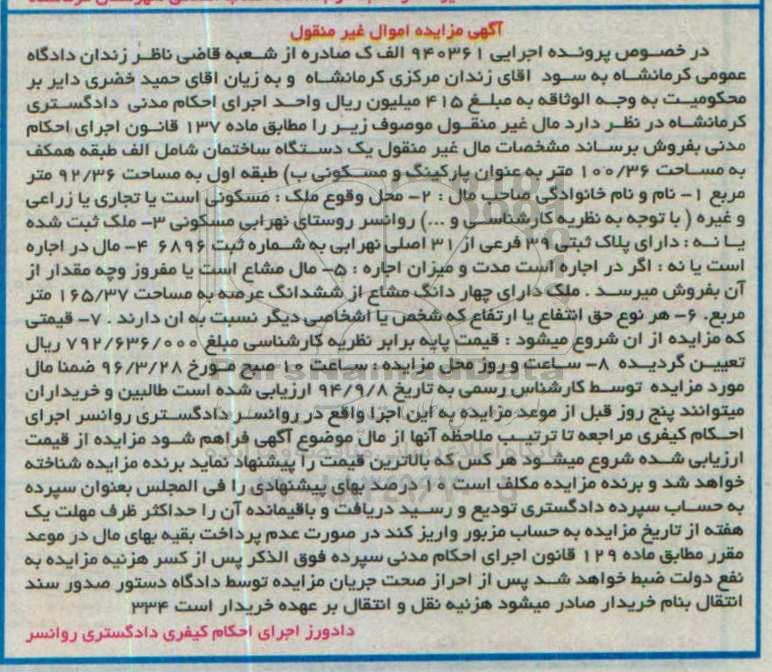 آگهی مزایده اموال غیر منقول
در خصوص پرونده اجرایی ۹۴۰۳۶۱ الف ک صادره از شعبه قاضی ناظر زندان دادگاه
عمومی کرمانشاه به سود اقای زندان مرکزی کرمانشاه و به زیان اقای حمید خضری دایر بر
محکومیت به وجه الوثاقه به مبلغ ۴۱۵ میلیون ریال واحد اجرای احکام مدنی دادگستری
کرمانشاه در نظر دارد مال غیر منقول موصوف زیر را مطابق ماده ۱۳۷ قانون اجرای احکام
مدنی بفروش برساند مشخصات مال غیر منقول یک دستگاه ساختمان شامل الف طبقه همکف
به مساحت ۱۰۰/۳۶ متر به عنوان پارکینگ و مسکونی ب) طبقه اول به مساحت ۹۲/۳۶ متر
مربع ۱- نام و نام خانوادگی صاحب مال : ۲- محل وقوع ملک : مسکونی است یا تجاری یا زراعی
و غیره ( با توجه به نظریه کارشناسی و ...) روانسر روستای نهرابی مسکونی ۳- ملک ثبت شده
یا نه : دارای پلاک ثبتی ۳۹ فرعی از ۳۱ اصلی نهرابی به شماره ثبت ۶۸۹۶ ۴- مال در اجاره
است یا نه : اگر در اجاره است مدت و میزان اجاره : ۵- مال مشاع است یا مفروز وچه مقدار از
آن بفروش میرسد . ملک دارای چهار دانگ مشاع از ششدانگ عرصه به مساحت ۱۶۵/۳۷ متر
مربع. ۶- هر نوع حق انتفاع یا ارتفاع که شخص یا اشخاصی دیگر نسبت به ان دارند . ۷- قیمتی
که مزایده از ان شروع میشود : قیمت پایه برابر نظریه کارشناسی مبلغ ۷۹۲/۶۳۶/۰۰۰ ریال
تعیین گردیده ۸- ساعت و روز محل مزایده : ساعت ۱۰ صبح مورخ ۹۶/۳/۲۸ ضمنا مال
مورد مزایده توسط کارشناس رسمی به تاریخ ۹۴/۹/۸ ارزیابی شده است طالبین و خریداران
میتوانند پنج روز قبل از موعد مزایده به این اجرا واقع در روانسر دادگستری روانسر اجرای
احکام کیفری مراجعه تا ترتیب ملاحظه آنها از مال موضوع آگهی فراهم شود مزایده از قیمت
ارزیابی شده شروع میشود هر کس که بالاترین قیمت را پیشنهاد نماید برنده مزایده شناخته
خواهد شد و برنده مزایده مکلف است ۱۰ درصد بهای پیشنهادی را فی المجلس بعنوان سپرده
به حساب سپرده دادگستری تودیع و رسید دریافت و باقیمانده آن را حداکثر ظرف مهلت یک
هفته از تاریخ مزایده به حساب مزبور واریز کند در صورت عدم پرداخت بقیه بهای مال در موعد
مقرر مطابق ماده ۱۲۹ قانون اجرای احکام مدنی سپرده فوق الذکر پس از کسر هزنیه مزایده به
نفع دولت ضبط خواهد شد پس از احراز صحت جریان مزایده توسط دادگاه دستور صدور سند
انتقال بنام خریدار صادر میشود هزنیه نقل و انتقال بر عهده خریدار است ۳۳۴
دادورز اجرای احکام کیفری دادگستری روانسر